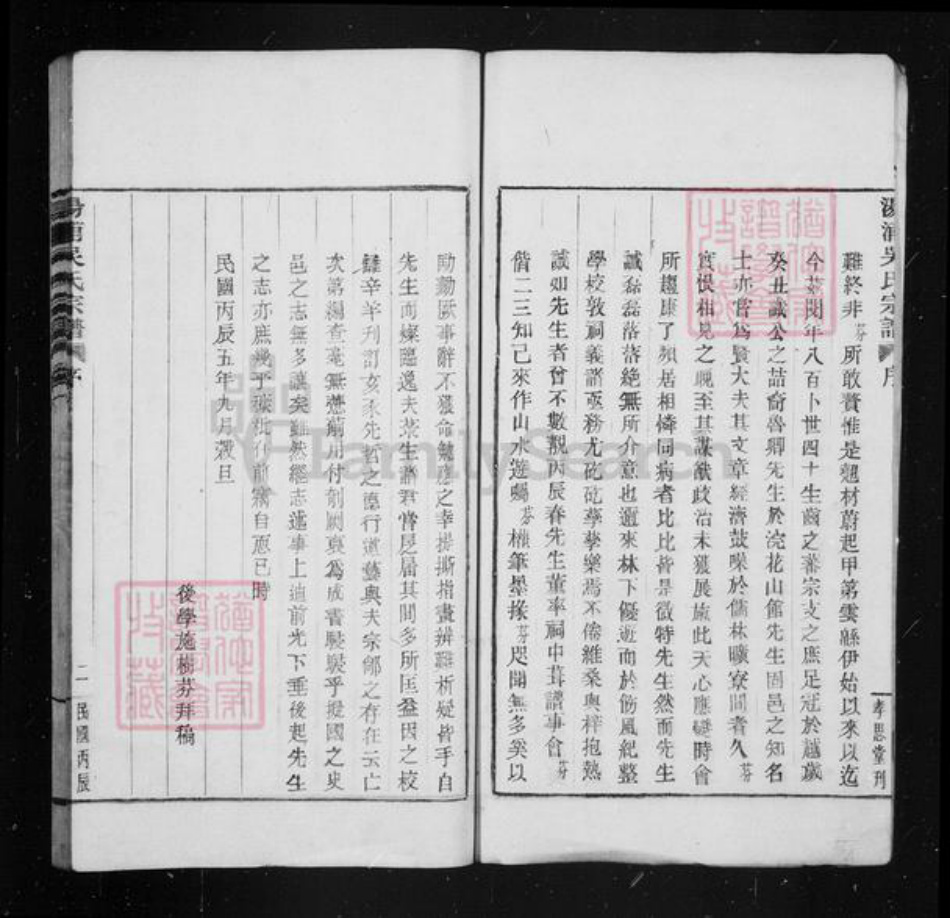 湯浦吳氏宗譜 序
孝思堂刊
難終非芬所敢贊惟是翹材蔚起甲第雲縣伊始以來以迄
今茲閱年八百卜世四十生齒之蕃宗支之庶足冠於越歲
癸丑識公之喆裔魯卿先生於浣花山館先生固邑之知名
士亦當爲賢大夫其文章經濟鼓噪於儒林曠寮間者久芬
實恨相見之晚至其謀猷政治未獲展施此天心應變時會
所趨康了頻居相憐同病者比比皆是微特先生然而先生
誠磊磊落落絕無所介意也邇來林下優游而於飭風紀整
學校敦祠義諸亟務尤矻矻孳孳樂焉不倦維桑與梓抱熱
誠如先生者曾不數觀丙辰春先生董率祠中葺譜事會芬
偕二三知己來作山水遊囑芬橅筆墨掾芬咫聞無多奚以
助勷厥事辭不獲命勉應之幸提撕指畫辨難析疑皆手自
先生而燦臨逸夫棠生諸君嘗居層其間多所匡益因之校
讎辛羊刊訂亥豕先哲之德行道藝與夫宗鄉之存在云亡
次第編查毫無愆前用付剞劂裒爲成書駸駸乎援國之史
邑之志無多讓矣雖然繼志述事上追前光下垂後起先生
之志亦庶幾乎
自恧已時
民國丙辰五年九月穀旦
後學施樹芬拜稿
湯浦吳氏宗譜 序
二 民國丙辰
FamilySearch